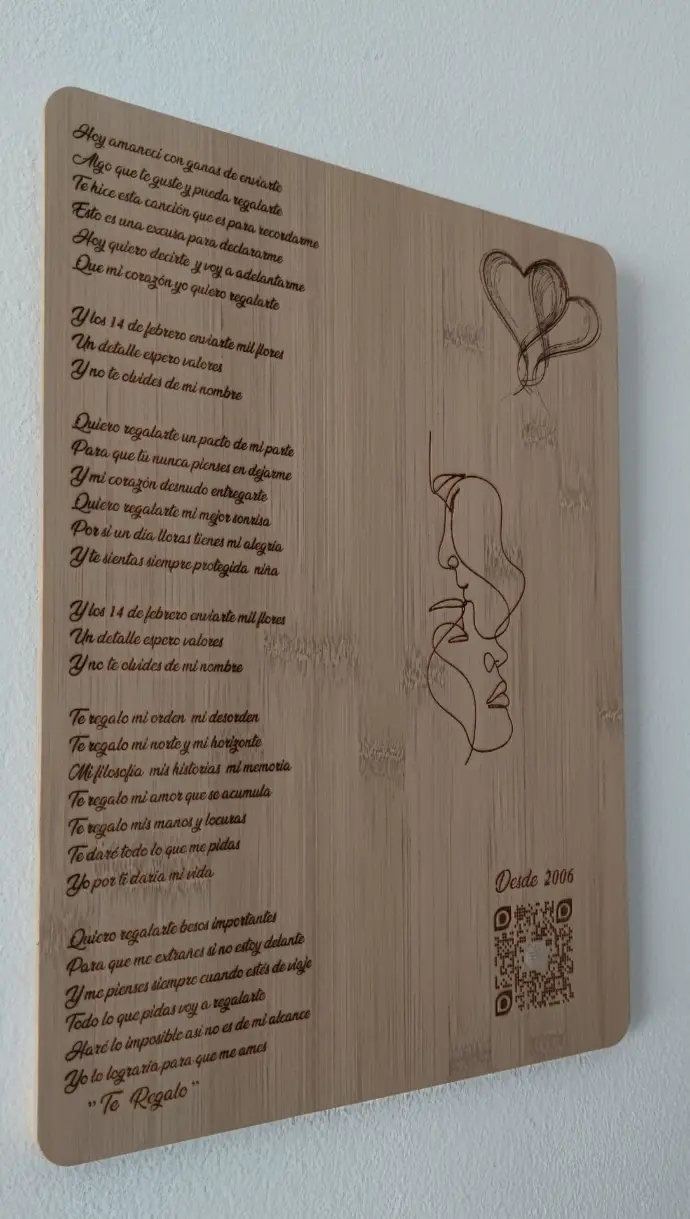 Hoy amaneci con ganas de enviarte
Algo que te guste y pueda regalarte
Te hice esta canción que es para recordarme
Esto es una excusa para declararme
Hoy quiero decirte y voy a adelantarme
Que mi corazón yo quiero regalarte
Y los 14 de febrero enviarte mil flores
Un detalle espero valores
Y no te olvides de mi nombre
Quiero regalarte un pacto de mi parte
Para que tú nunca pienses en dejarme
Y mi corazón desnudo entregarte
Quiero regalarte mi mejor sonrisa
Por si un día lloras tienes mi alegría
Y te sientas siempre protegida niña
Y los 14 de febrero enviarte mil flores
Un detalle espero valores
Y no te olvides de mi nombre
Te regalo mi orden mi desorden
Te regalo mi norte y mi horizonte
Mi filosofía mis historias mi memoria
Te regalo mi amor que se acumula
Te regalo mis manos y locuras
Te daré todo lo que me pidas
Yo por ti daría mi vida
Quiero regalarte besos importantes
Para que me extrañes si no estoy delante
Y me pienses siempre cuando estés de viaje
Todo lo que pidas voy a regalarte
Haré lo imposible así no es de mi alcance
Yo lo lograría para que me ames
" Te Regalo "
Desde 2006